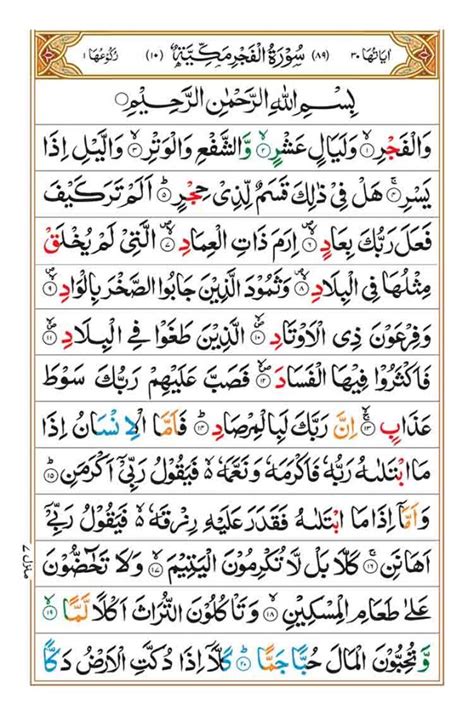 اٰيَاتُهَا ٣٠ (٨٩) سُوْرَةُ الْفَجْرِ مَكِّيَّةٌ (١٠) رُكُوْعُهَا ١
بِسْمِ اللهِ الرَّحْمٰنِ الرَّحِيْمِ
وَالْفَجْرِ ۙ﴿١﴾ وَلَيَالٍ عَشْرٍ ۙ﴿٢﴾ وَّالشَّفْعِ وَالْوَتْرِ ۙ﴿٣﴾ وَالَّيْلِ اِذَا
يَسْرِ ۚ﴿٤﴾ هَلْ فِيْ ذٰلِكَ قَسَمٌ لِّذِيْ حِجْرٍ ؕ﴿٥﴾ اَلَمْ تَرَ كَيْفَ
فَعَلَ رَبُّكَ بِعَادٍ ۙ﴿٦﴾ اِرَمَ ذَاتِ الْعِمَادِ ۙ﴿٧﴾ الَّتِيْ لَمْ يُخْلَقْ
مِثْلُهَا فِي الْبِلَادِ ۙ﴿٨﴾ وَثَمُوْدَ الَّذِيْنَ جَابُوا الصَّخْرَ بِالْوَادِ ۙ﴿٩﴾
وَفِرْعَوْنَ ذِي الْاَوْتَادِ ۙ﴿١٠﴾ الَّذِيْنَ طَغَوْا فِي الْبِلَادِ ۙ﴿١١﴾
فَاَكْثَرُوْا فِيْهَا الْفَسَادَ ۙ﴿١٢﴾ فَصَبَّ عَلَيْهِمْ رَبُّكَ سَوْطَ
عَذَابٍ ۚ﴿١٣﴾ اِنَّ رَبَّكَ لَبِالْمِرْصَادِ ؕ﴿١٤﴾ فَاَمَّا الْاِنْسَانُ اِذَا
مَا ابْتَلٰىهُ رَبُّهٗ فَاَكْرَمَهٗ وَنَعَّمَهٗ ۙ فَيَقُوْلُ رَبِّيْ اَكْرَمَنِ ؕ﴿١٥﴾
وَاَمَّاۤ اِذَا مَا ابْتَلٰىهُ فَقَدَرَ عَلَيْهِ رِزْقَهٗ ۙ فَيَقُوْلُ رَبِّيْۤ
اَهَانَنِ ۚ﴿١٦﴾ كَلَّا بَلْ لَّا تُكْرِمُوْنَ الْيَتِيْمَ ۙ﴿١٧﴾ وَلَا تَحٰٓضُّوْنَ
عَلٰى طَعَامِ الْمِسْكِيْنِ ۙ﴿١٨﴾ وَتَاْكُلُوْنَ التُّرَاثَ اَكْلًا لَّمًّا ۙ﴿١٩﴾
وَّتُحِبُّوْنَ الْمَالَ حُبًّا جَمًّا ؕ﴿٢٠﴾ كَلَّاۤ اِذَا دُكَّتِ الْاَرْضُ دَكًّا